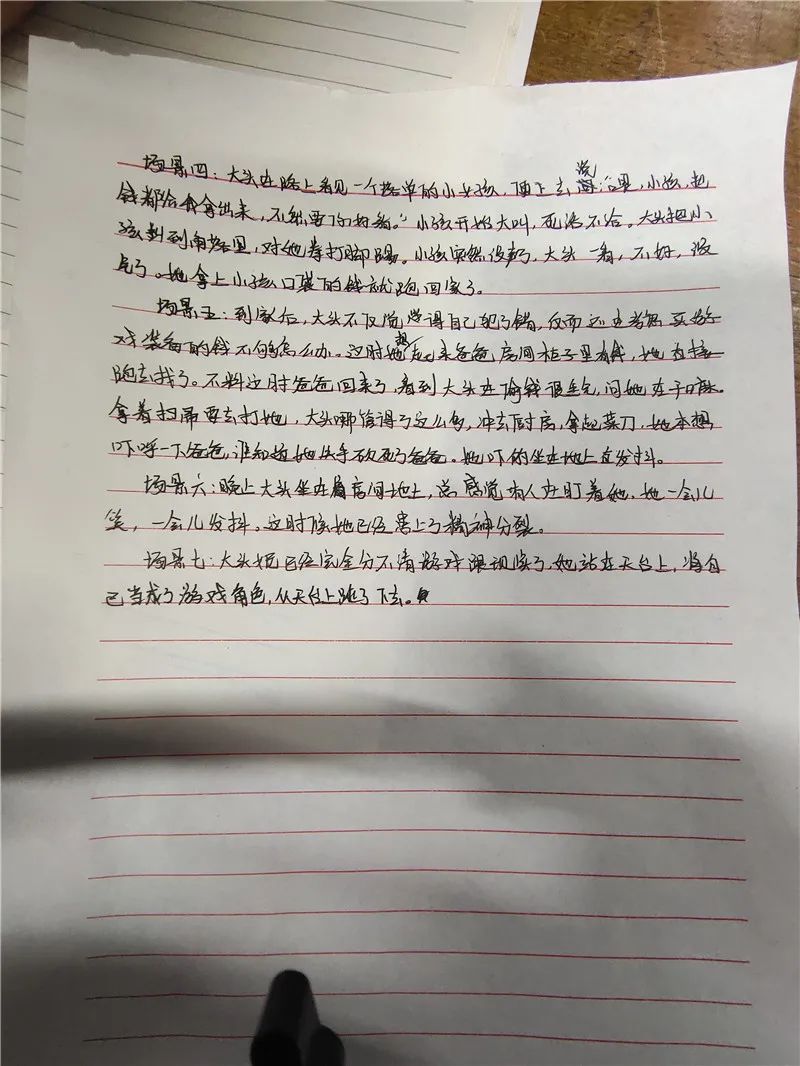 场景四：大头在路上看见一个落单的小女孩，便上去说：“喂，小孩，把
钱都给我拿出来，不然要你好看。”小孩开始大叫，死活不给。大头把小
孩拽到角落里，对她拳打脚踢。小孩突然没声了，大头一看，不好，没
气了。她拿上小孩口袋的钱就跑回家了。
场景五：到家后，大头不仅没觉得自己犯了错，反而还在考虑买游
戏装备的钱不够怎么办。这时她想起来爸爸房间柜子里有钱，她直接
跑去找了。不料这时爸爸回来了，看到大头在偷钱很生气，问她在干嘛。
拿着扫帚要去打她，大头哪管得了这么多，冲去厨房，拿起菜刀，她本想
吓唬一下爸爸，谁知道她失手砍死了爸爸。她吓的坐在地上直发抖。
场景六：晚上大头坐在房间地上，总感觉有人在盯着她，她一会儿
笑，一会儿发抖。这时候她已经患上了精神分裂。
场景七：大头已经完全分不清游戏跟现实了，她站在天台上，将自
己当成了游戏角色，从天台上跳了下去。